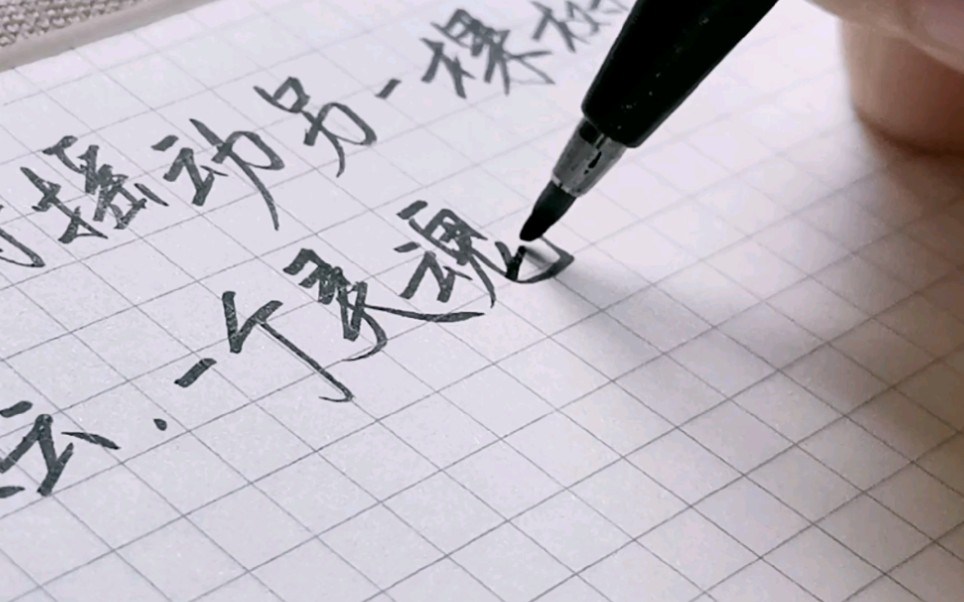 摇动另一棵树
云.一个灵魂